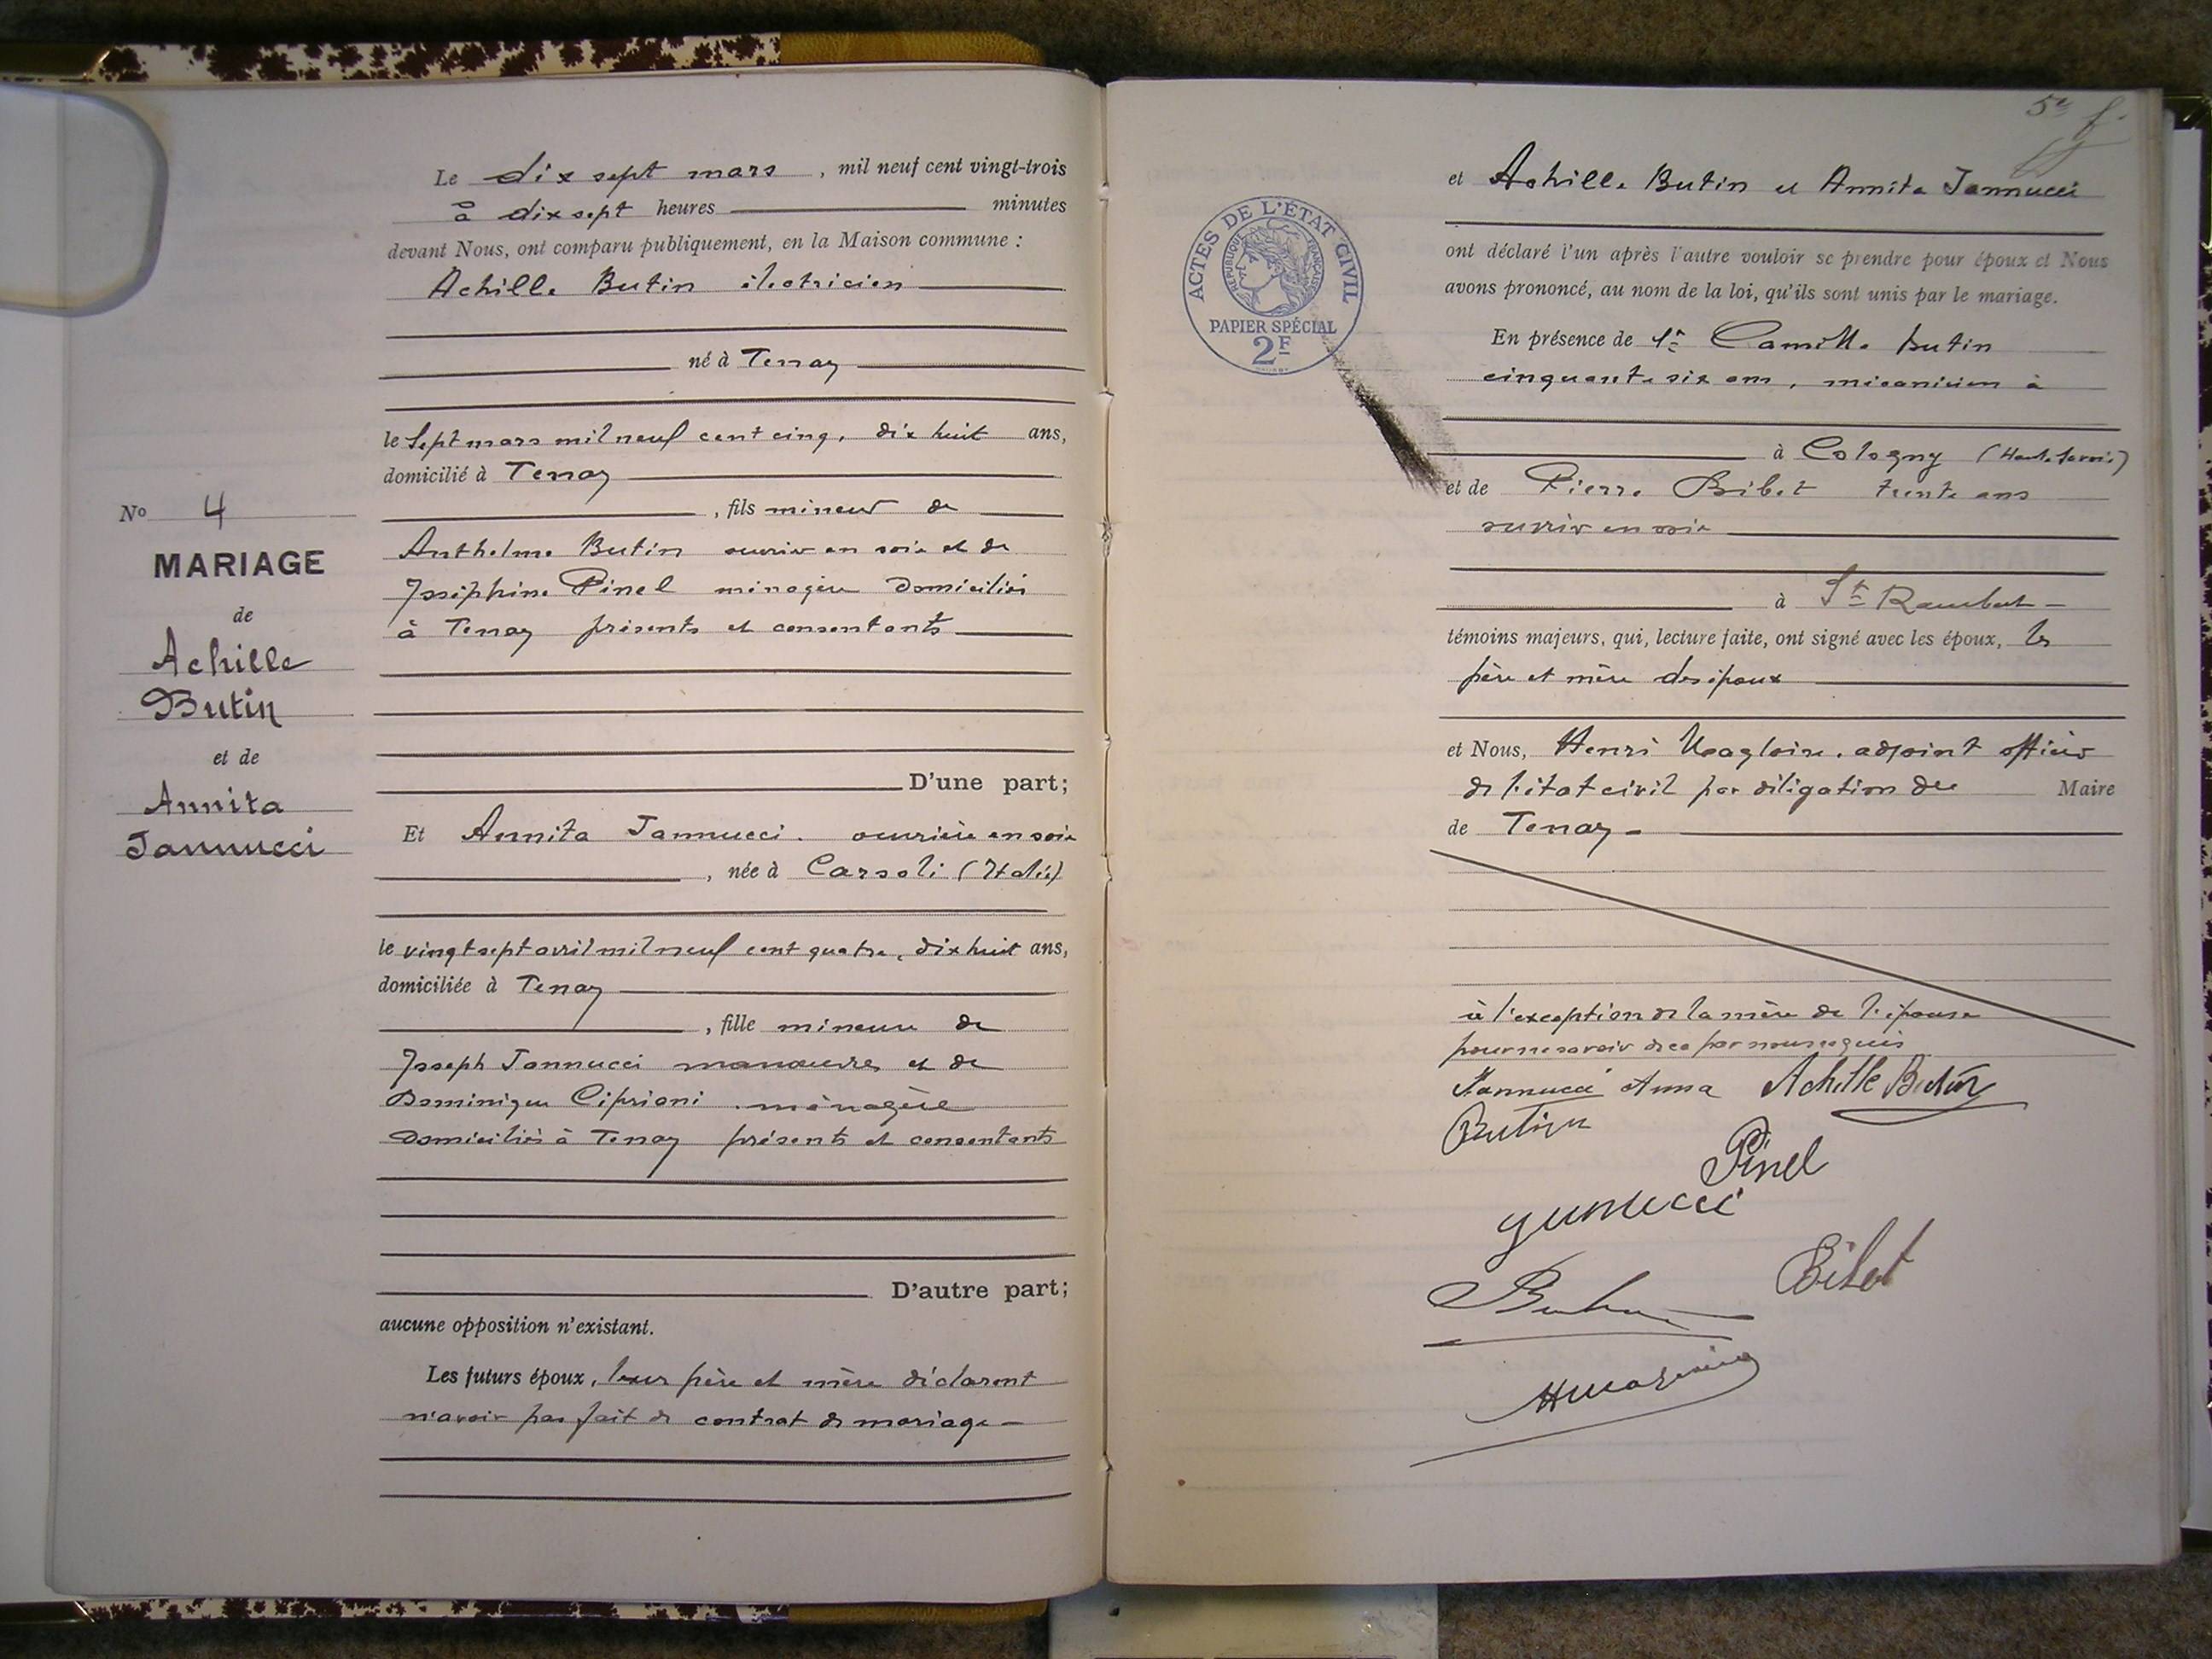 Le dix sept mars, mil neuf cent vingt-trois
à dix sept heures minutes
devant Nous, ont comparu publiquement, en la Maison commune :
Achille Butin électricien
né à Tenay
le sept mars mil neuf cent cinq, dix huit ans,
domicilié à Tenay
, fils mineur de
Anthelme Butin ouvrier en soie et de
Joséphine Pinel ménagère domiciliés
à Tenay présents et consentants
D'une part;
Et Annita Jannucci. ouvrière en soie
, née à Carsoli (Italie)
le vingt sept avril mil neuf cent quatre, dix huit ans,
domiciliée à Tenay
, fille mineure de
Joseph Jannucci manœuvre et de
Dominique Ciprioni . ménagère
domiciliés à Tenay présents et consentants
D'autre part;
aucune opposition n'existant.
Les futurs époux, leurs père et mère déclarent
n'avoir pas fait de contrat de mariage -
No 4
MARIAGE
de
Achille
Butin
et de
Annita
Jannucci
ACTES DE L'ÉTAT CIVIL
RÉPUBLIQUE FRANÇAISE
PAPIER SPÉCIAL
2F
5e f.
et Achille Butin et Annita Jannucci
ont déclaré l'un après l'autre vouloir se prendre pour époux et Nous
avons prononcé, au nom de la loi, qu'ils sont unis par le mariage.
En présence de Camille Butin
cinquante six ans, mécanicien à
à Cologny (Haute Savoie)
et de Pierre Bibet trente ans
ouvrier en soie
à St Rambert -
témoins majeurs, qui, lecture faite, ont signé avec les époux, les
père et mère des époux
et Nous, Henri adjoint officier
de l'état civil par délégation du Maire
de Tenay -
à l'exception de la mère de l'épouse
pour ne savoir de ce par nous requis
Jannucci Anna Achille Butin
Butin
Pinel
Bibet